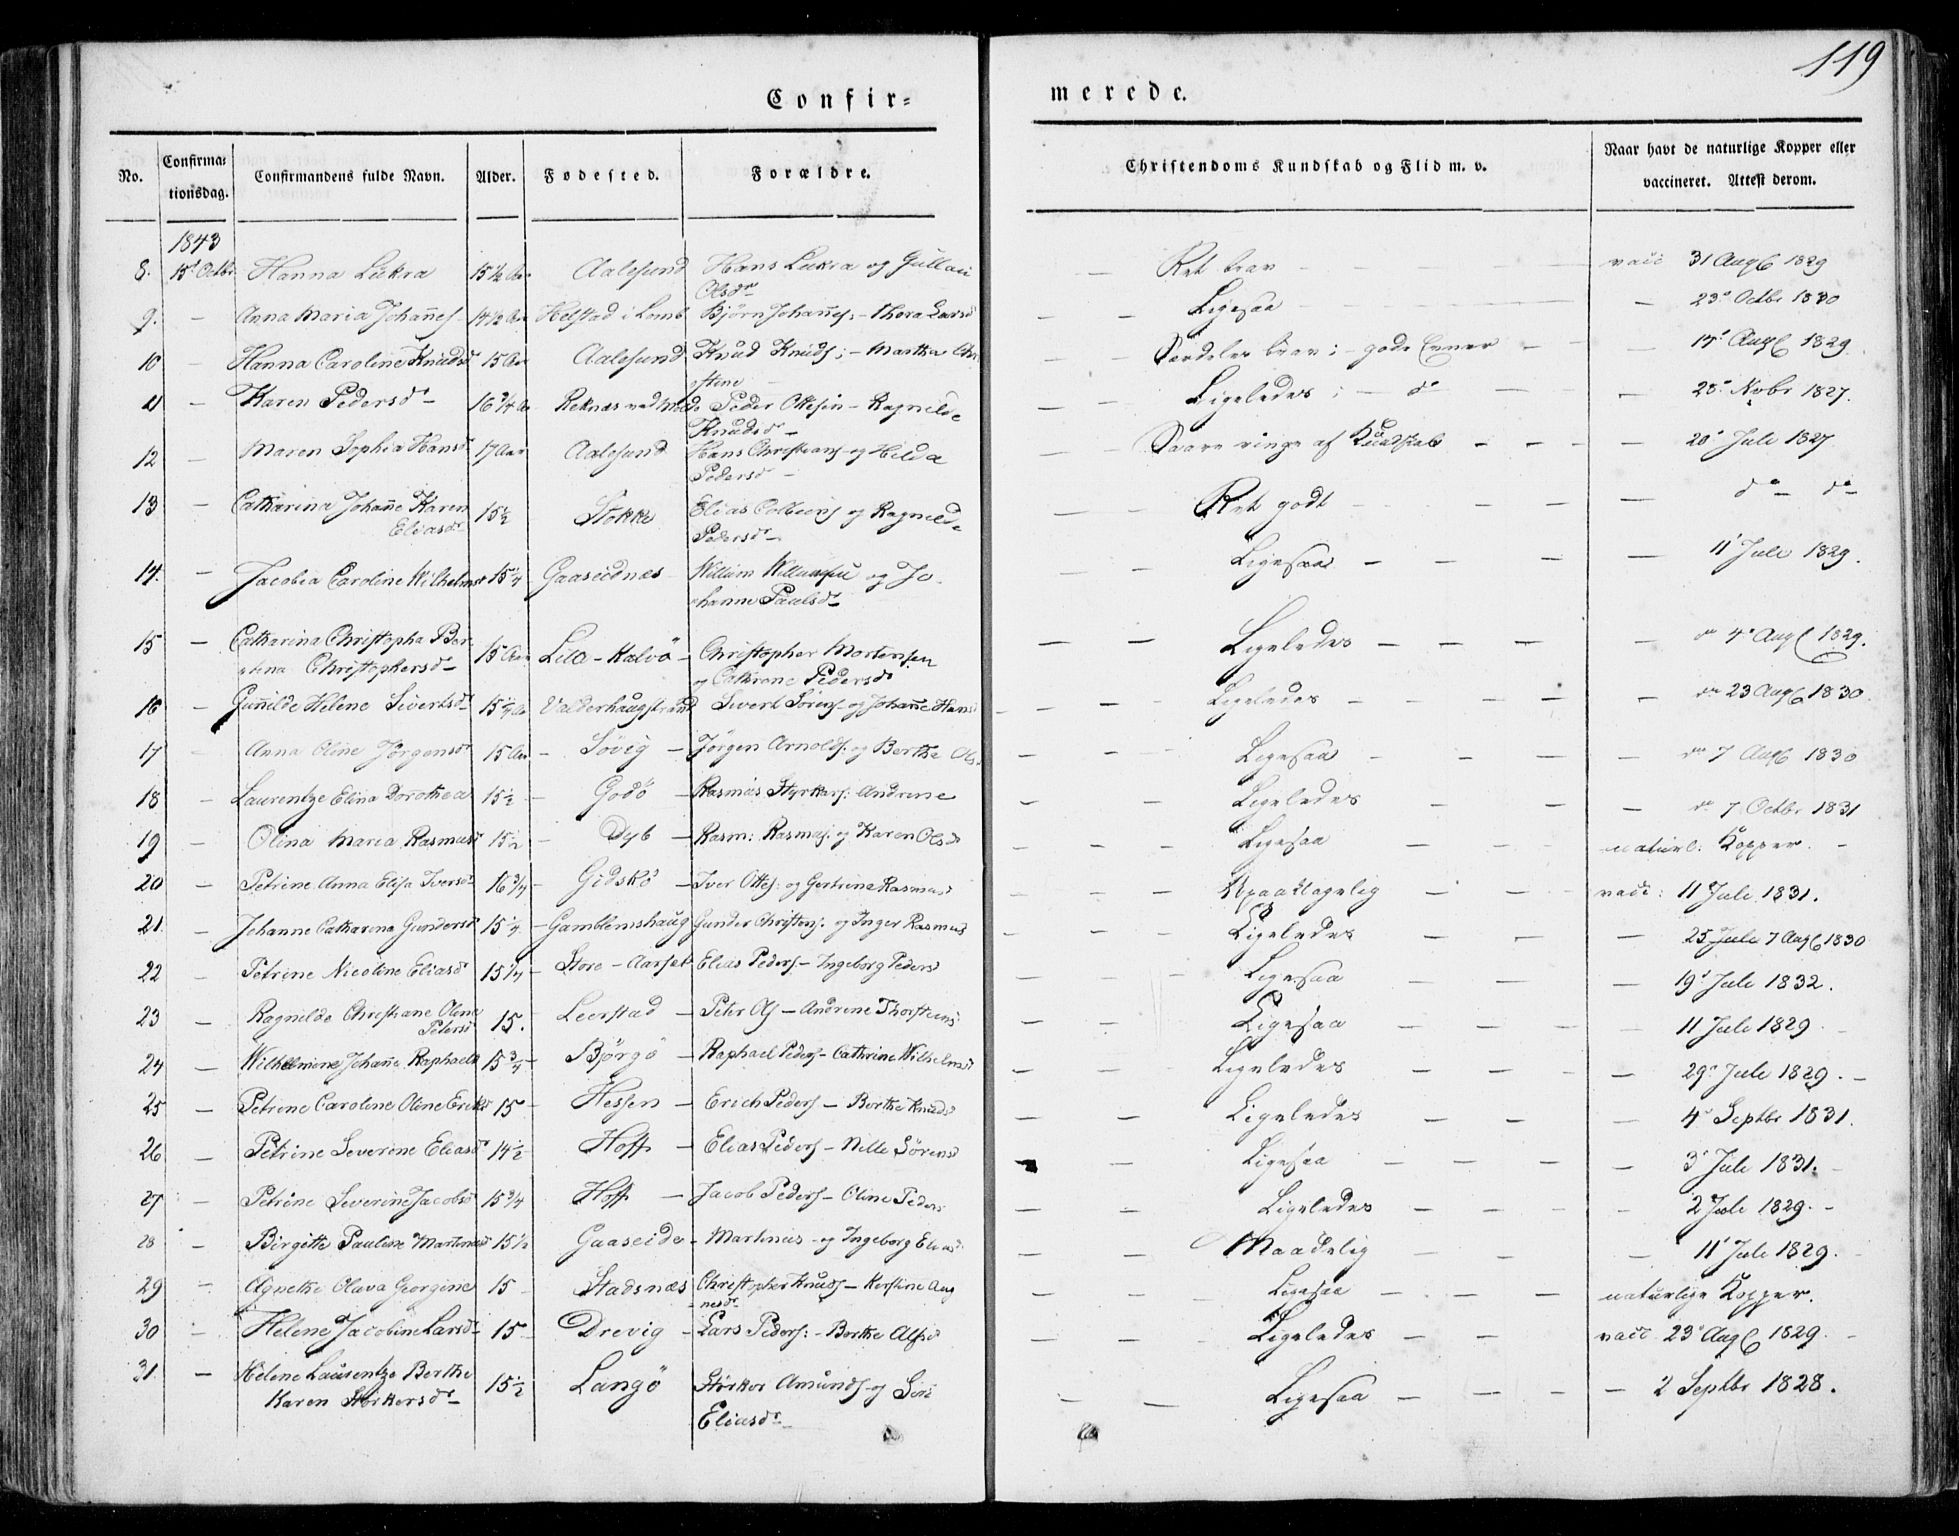 119
Confirmerede.
No. Confirmationsdag. Confirmandens fulde Navn. Alder. Fødested. Forældre. Christendoms Kundskab og Flid m. v. Naar havt de naturlige Kopper eller vaccineret. Attest derom.
1843
8. 15d Octbr Hanna Lükra 15½ Aar Aalesund Hans Lükra og Gullau Olsdr — — Ret brav — vacc 31 Augs 1829
9. — Anna Maria Johañes 14½ Aar Helstad i Lomb Bjørn Johañes: — Thora Larsd — — Ligesaa — 23d Octbr 1830
10 — Hanna Caroline Knudsd 15 Aar Aalesund Knud Knuds; — Martha Christine — — Særdeles brav; — gode Evner — — 17d Augs 1829.
11 — Karen Pedersdr 16¾ Aa Reknæs ved Molde Peder Ottesen — Ragnilde Knudsdr — — Ligeledes; — do — 28d Novbr 1827.
12 — Maren Sophia Hansd 17 Aar Aalesund Hans Christians og Hilda Pedersdr — — Saare ringe af Kundskab — — 20d Juli 1827
13 — Catharina Johañe Karen Eliasdr 15½ Stokke Elias Colbeins og Ragnilde Pedersdr — — Ret godt — — do — do
14. — Jacobia Caroline Wilhelmsd 15¼ Gaaseidnæs Willum Willumsen og Johanne Paulsdr — — Ligesaa — — 11 Juli 1829.
15 — Catharina Christopha Berntina Christophersdr 15 Aar Lila-Kalvö — Christopher Mortensen og Cathrine Pedersdr — — Ligeledes — — do 4d Augs 1829.
16 — Guñilde Helene Sivertsdr 15¼ Aar Valderhaugstrand Sivert Sörens og Johañe Hansd — — Ligeledes — — do 23 Augs 1830
17 — Anna Oline Jørgensdr 15 Aar — Søvig — Jørgen Arnolds: og Berthe Olsd — — Ligesaa — — do 7 Augs 1830
18 — Laurentze Elina Dorothea 15½ — Godö — Rasmus Styrkars: Andrine — — Ligeledes — — do 7 Octbr 1831
19 — Olina Maria Rasmusd 15½ — Dyb — Rasm: Rasmuss: og Karen Olsd — — Ligesaa — — naturl: Kopper. —
20 — Petrine Anna Elisa Iversdr 16¾ — Gidskö — Iver Ottes: og Gertrine Rasmusd — — Upaaklagelig — — vacc: 11 Juli 1831.
21. — Johanne Catharina Gundersd 15¼ — Gamblemshaug Gunder Christens: og Inger Rasmusd — — Ligeledes — — 25 Juli 7 Augs 1830
22 — Petrine Nicoline Eliasd 15¼ — Store-Aarset Elias Peders — Ingeborg Pedersd — — Ligesaa — — 19d Juli 1832.
23 — Ragnilde Christiane Oline Petersd 15. Leerstad — Peter Ols — Andrine Thorsteinsd — — Ligesaa — — 11 Juli 1829 —
24 — Wilhelmine Johañe Raphaelsd 15¾ — Björgö — Raphael Peders — Cathrine Wilhelmsd — — Ligeledes — — 29d Juli 1829. —
25 — Petrine Caroline Oline Eriksd 15 — Hessen — Erich Peders — Berthe Knudsd — — Ligeledes — — 4d Septbr 1831.
26 — Petrine Severine Eliasd 14½ — Hoff — Elias Peders — Nille Sörensd — — Ligesaa — — 3d Juli 1831. —
27 — Petrine Severine Jacobsd 15¾ Hoff — Jacob Peders — Oline Pedersd — — Ligeledes — — 2 Juli 1829. —
28 — Birgitte Pauline Martinusd 15½ Gaaseide — Martinus — og Ingeborg Eliasd — — Maadelig — — 11d Juli 1829. —
29 — Agnethe Olava Georgine 15 — Stadsnæs Christopher Knuds — Kirstine Augnesdr — — Ligesaa — — naturlige Kopper.
30 — Helene Jacobine Larsdr 15 — Drevig — Lars Peders: — Berthe Alfsd — — Ligeledes — — vacc 23d Augs 1829. —
31. — Helene Laurentze Berthe Karen Störkersdr 15½ Langö Störker Amunds og Siri Eliasdr — — Ligesaa — — 2 Septbr 1828.